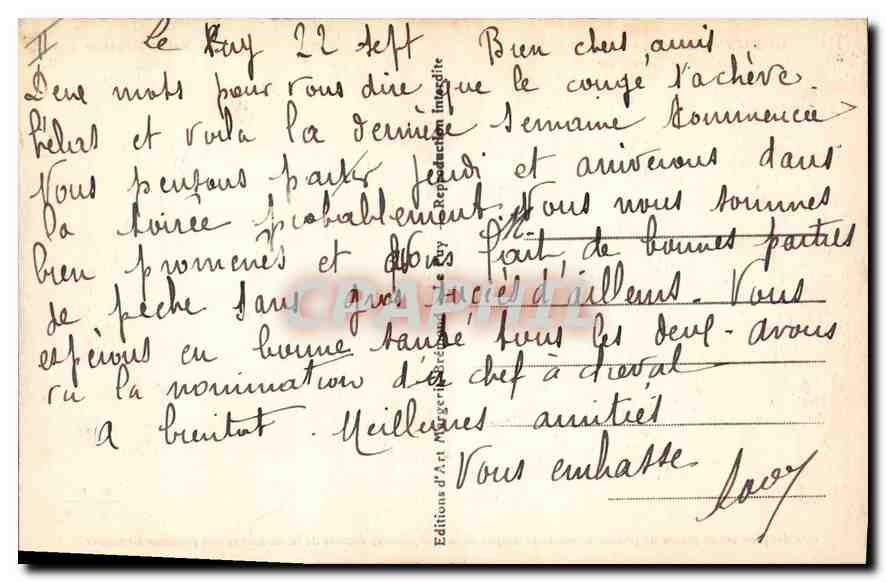 Le Puy 22 sept Bien chers amis
Deux mots pour vous dire que le congé s'achève
hélas et voilà la dernière semaine commencée
Nous pensons partir jeudi et arriverons dans
la soirée probablement. Nous nous sommes
bien promenés et avons fait de bonnes parties
de pêche sans gros succès d'ailleurs. Vous
espérons en bonne santé tous les deux - avons
vu la nomination du chef à cheval
A bientot. Meilleures amitiés
Vous embrasse
Editions d'Art Margerit-Brémond - Le Puy - Reproduction Interdite
CPAPHIL